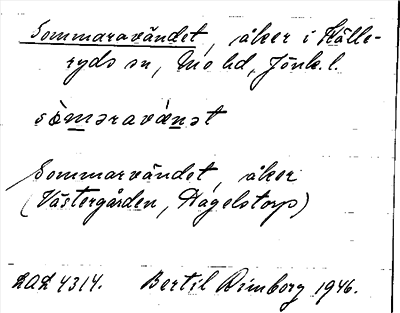 Sommaravändet, åker i Källe-
ryds sn, Mo hd, Jönk. l.
sòmaravänət
Sommarvändet, åker
(Västergården, Hagelstorp)
DAL 4314. Bertil Rimborg 1946.